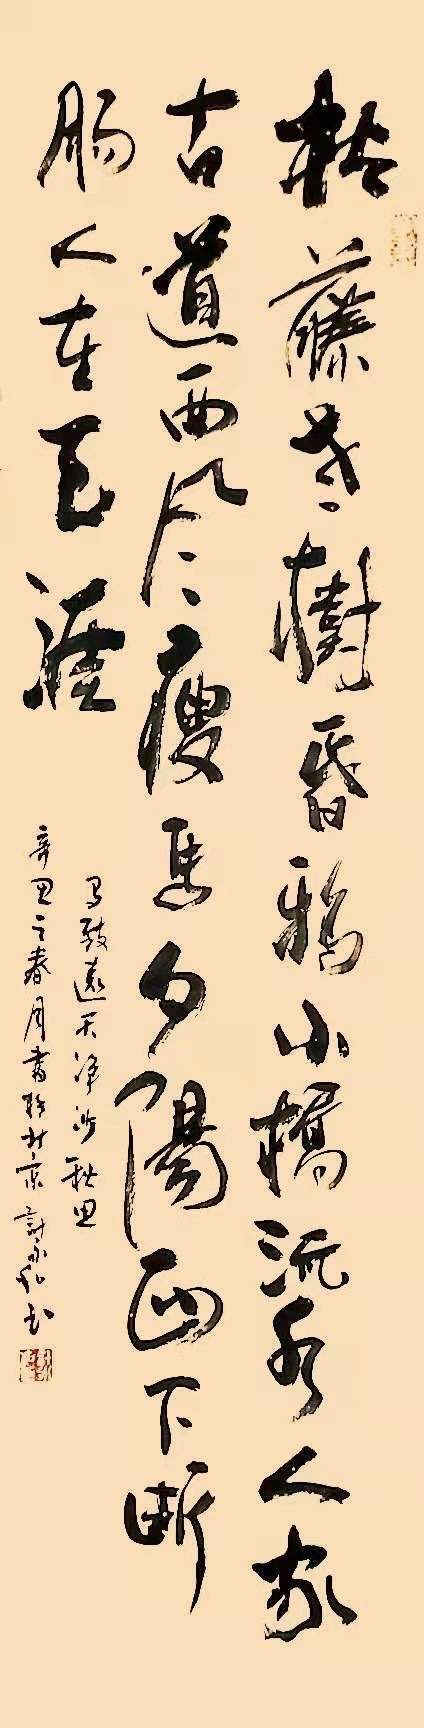 枯藤老樹昏鴉小橋流水人家
古道西风瘦馬夕陽西下断
腸人在天涯
马致遠天净沙秋思
辛丑之春月書於北京